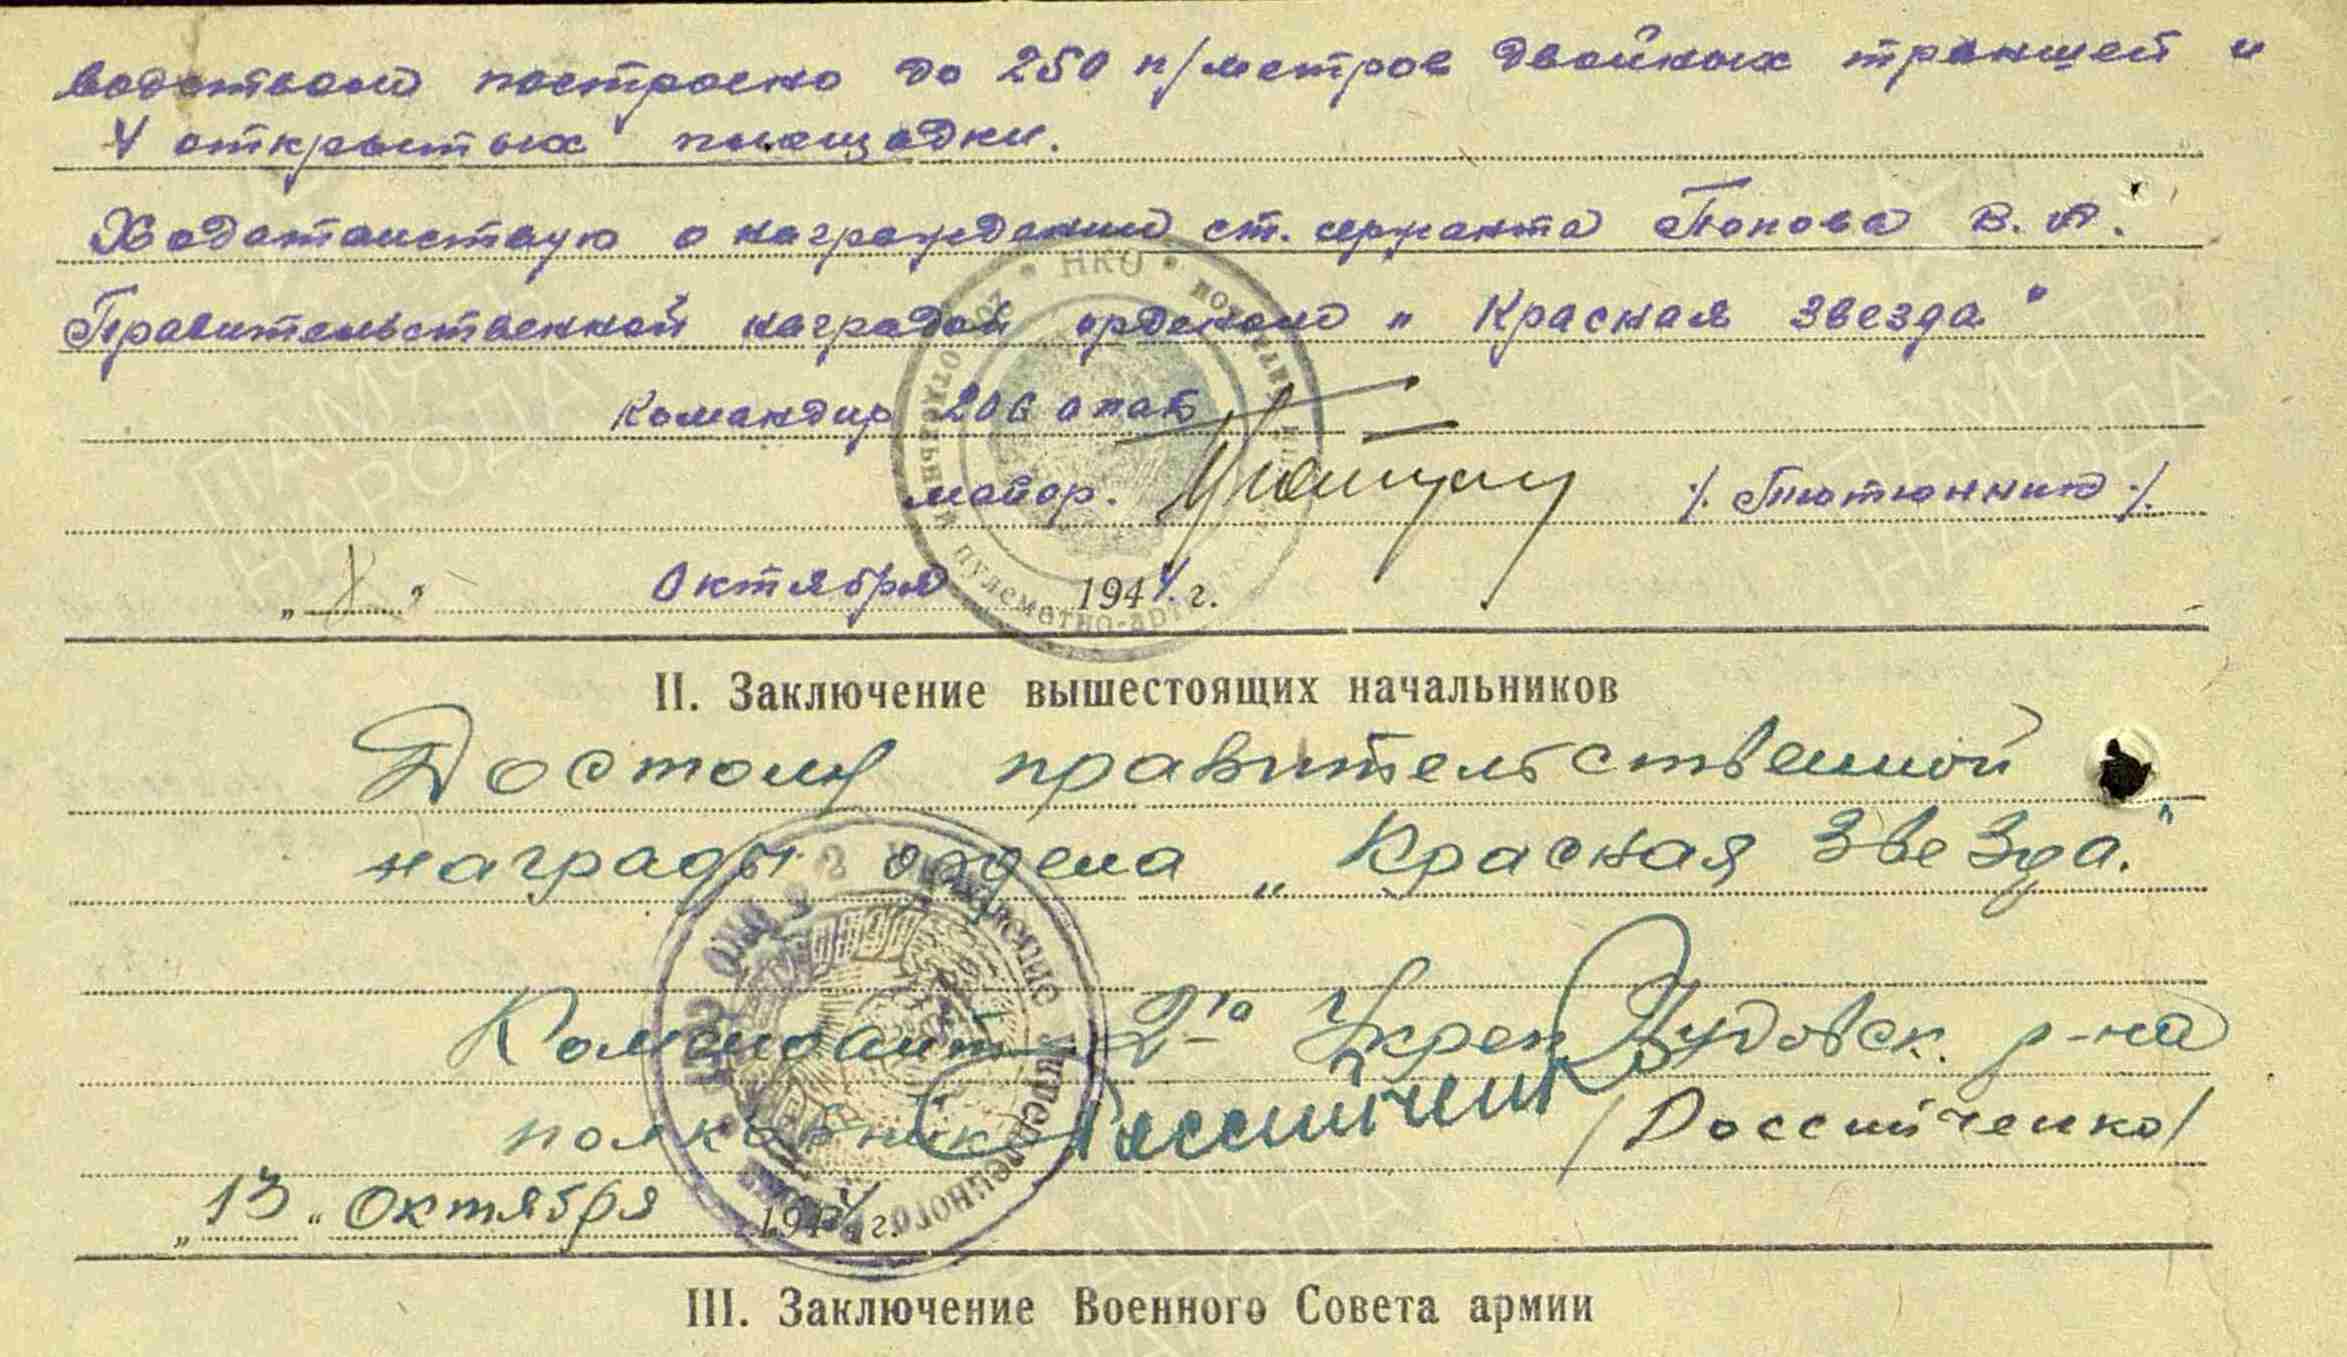 водством построено до 250 п/метров двойных траншей и
4 открытых площадки.
Ходотаиствую о награждении ст. сержанта Попова В. А.
Правительственной наградой орденом „Красная звезда"
Командир 206 опаб
майор. /. Тютюнник ./.
„ " Октября 1944 г.
II. Заключение вышестоящих начальников
Достоин правительственной
награды ордена „Красная Звезда."
Комендант 2го Укреп р-на
полковник /Российченко/
„13" Октября 1944 г.
III. Заключение Военного Совета армии
НКО
ПАМЯТЬ НАРОДА